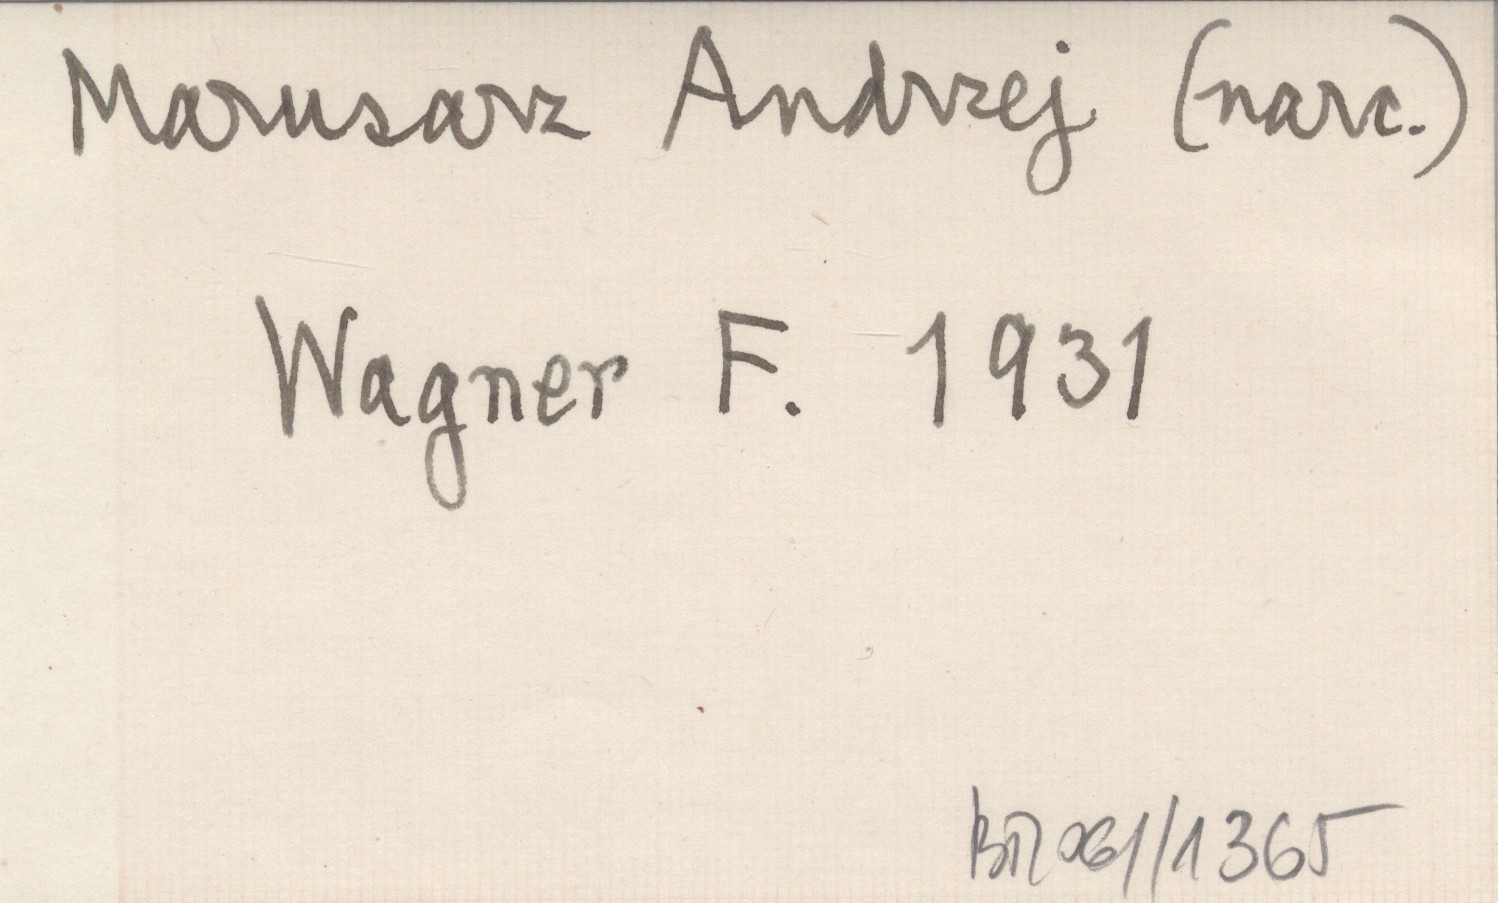 Marusarz Andrzej (narc.)
Wagner F. 1931
/1365